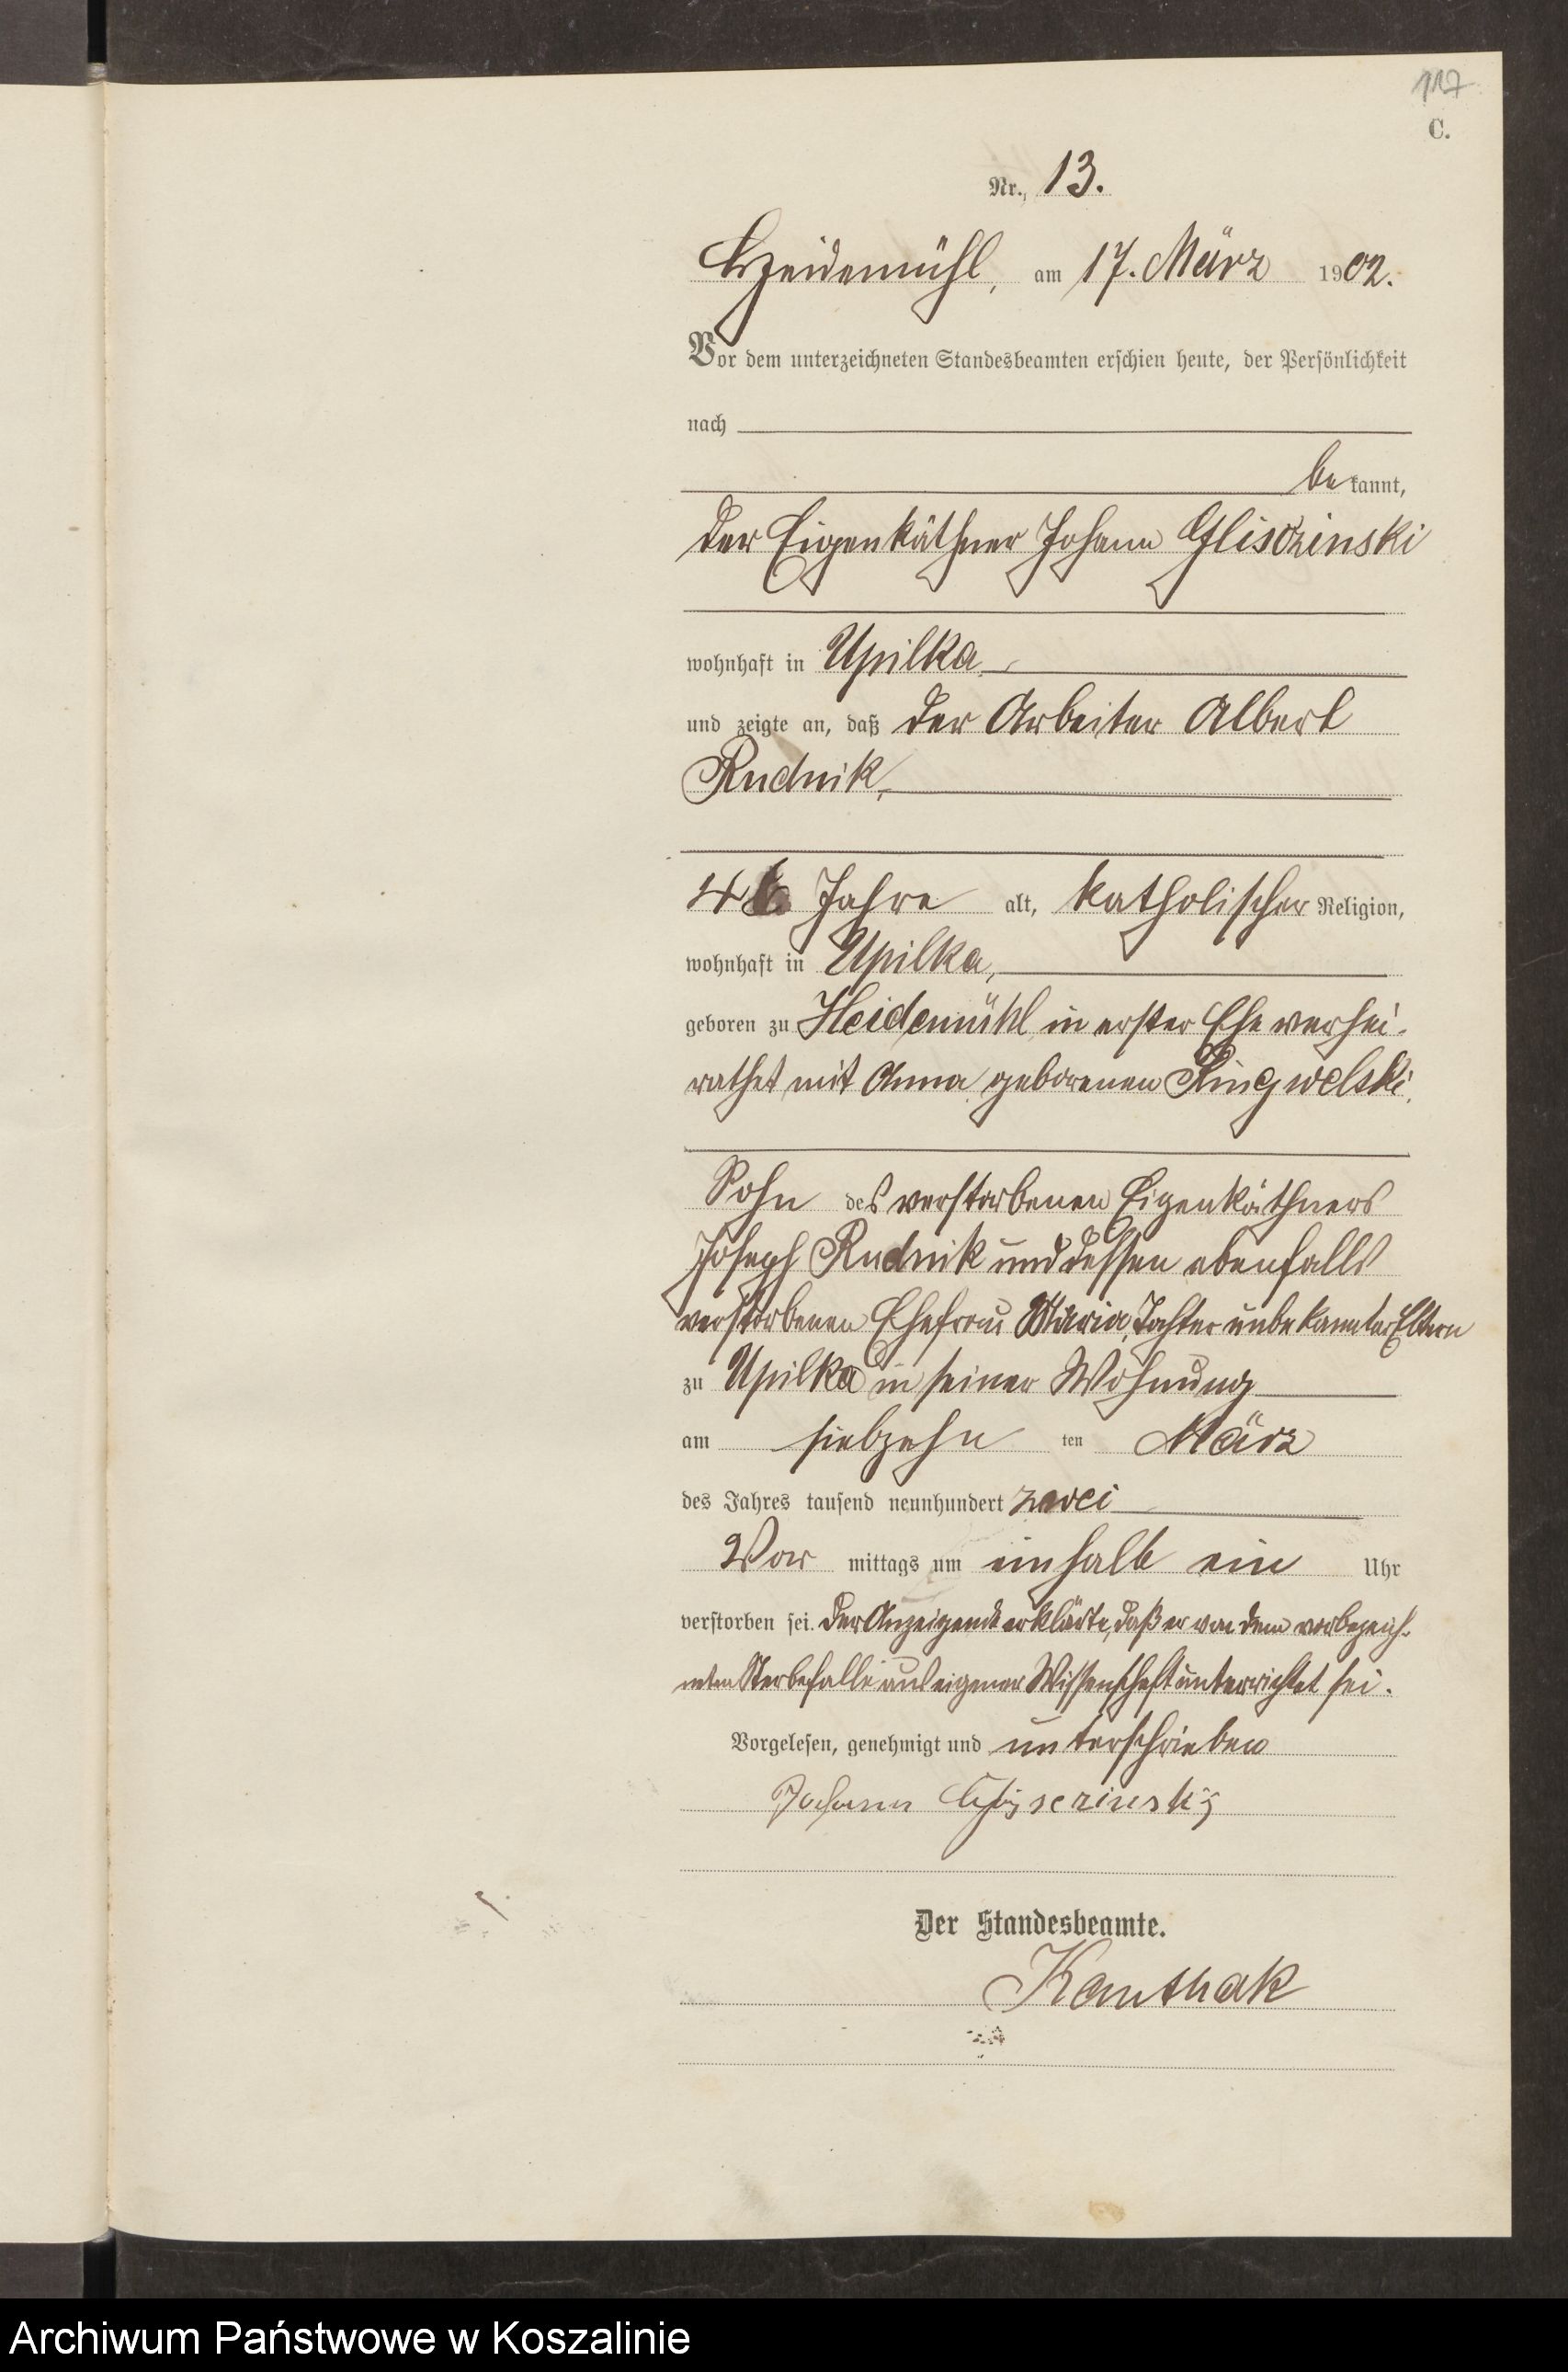 117
C.
Nr. 13.
Heidemühl, am 17. März 1902.
Vor dem unterzeichneten Standesbeamten erschien heute, der Persönlichkeit
nach
bekannt,
der Eigenkäthner Johann Gliszinski
wohnhaft in Upilka,
und zeigte an, daß der Arbeiter Albert
Rudnik,
Jahre alt, katholischer Religion,
wohnhaft in Upilka,
geboren zu Heidemühl in erster Ehe verhei-
rathet mit Anna geborenen Ringwelski,
Sohn des verstorbenen Eigenkäthners
Joseph Rudnik und dessen ebenfalls
verstorbenen Ehefrau Maria, Tochter unbekannter Eltern
zu Upilka in seiner Wohnung
am siebzehn ten März
des Jahres tausend neunhundert zwei
Vor mittags um einhalb ein Uhr
verstorben sei. Der Anzeigende erklärte, daß er von dem vorbezeich-
neten Sterbefalle aus eigener Wissenschaft unterrichtet sei.
Vorgelesen, genehmigt und unterschrieben
Johann
Der Standesbeamte.
Kanthak
Archiwum Państwowe w Koszalinie